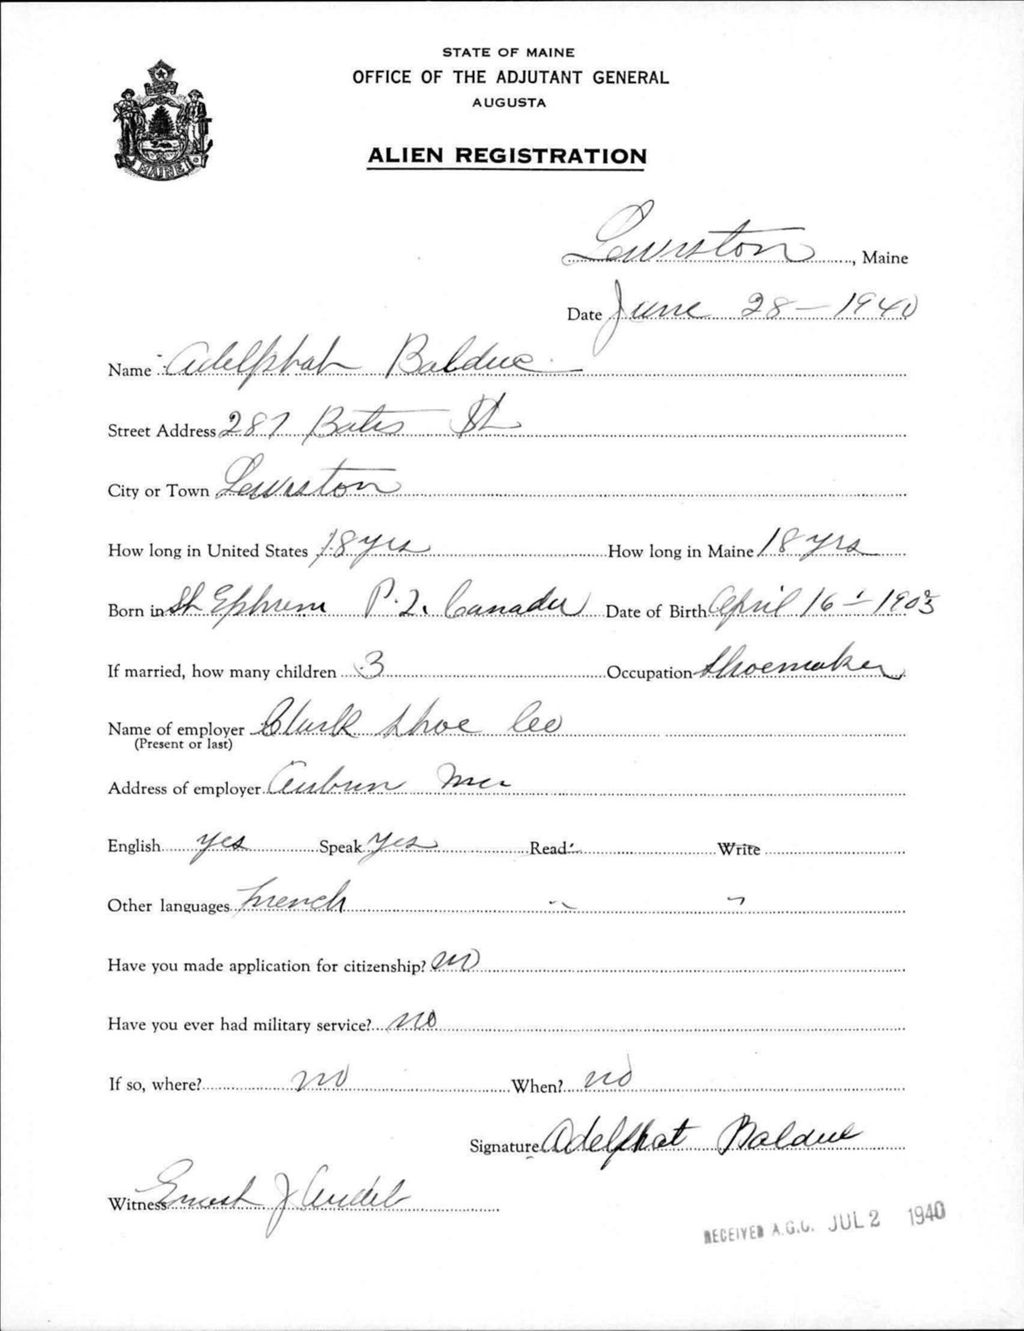 STATE OF MAINE
OFFICE OF THE ADJUTANT GENERAL
AUGUSTA
MAINE
ALIEN REGISTRATION
Lewiston, Maine
Date June 28 - 1940
Name Adelphat Balduc
Street Address 287 Bates St
City or Town Lewiston
How long in United States 18 yrs How long in Maine 18 yrs
Born in St Ephrem P.Q. Canada Date of Birth April 16 - 1903
If married, how many children 3 Occupation Shoemaker
Name of employer Clark Shoe Co
(Present or last)
Address of employer Auburn Me
English yes Speak yes Read " Write
Other languages French " "
Have you made application for citizenship? no
Have you ever had military service? no
If so, where? no When? no
Signature Adelphat Balduc
Witness Ernest J
RECEIVED A.G.O. JUL 2 1940